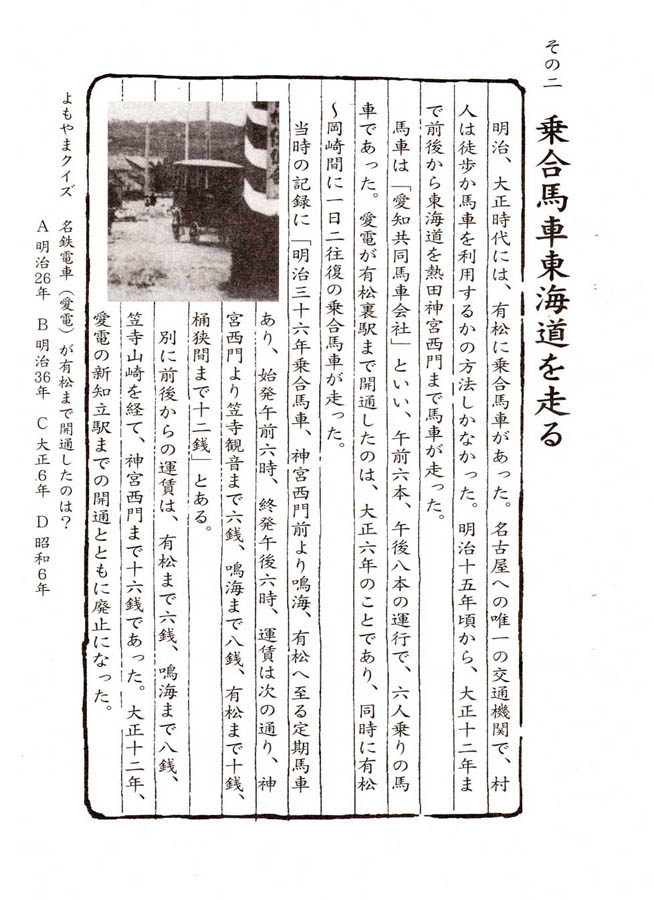 その二 乗合馬車東海道を走る
明治、大正時代には、有松に乗合馬車があった。名古屋への唯一の交通機関で、村
人は徒歩か馬車を利用するかの方法しかなかった。明治十五年頃から、大正十二年ま
で前後から東海道を熱田神宮西門まで馬車が走った。
馬車は「愛知共同馬車会社」といい、午前六本、午後八本の運行で、六人乗りの馬
車であった。愛電が有松裏駅まで開通したのは、大正六年のことであり、同時に有松
〜岡崎間に一日二往復の乗合馬車が走った。
当時の記録に「明治三十六年乗合馬車、神宮西門前より鳴海、有松へ至る定期馬車
あり、始発午前六時、終発午後六時、運賃は次の通り、神
宮西門より笠寺観音まで六銭、鳴海まで八銭、有松まで十銭、
桶狭間まで十二銭」とある。
別に前後からの運賃は、有松まで六銭、鳴海まで八銭、
笠寺山崎を経て、神宮西門まで十六銭であった。大正十二年、
愛電の新知立駅までの開通とともに廃止になった。
よもやまクイズ 名鉄電車（愛電）が有松まで開通したのは？
A 明治26年 B 明治36年 C 大正6年 D 昭和6年